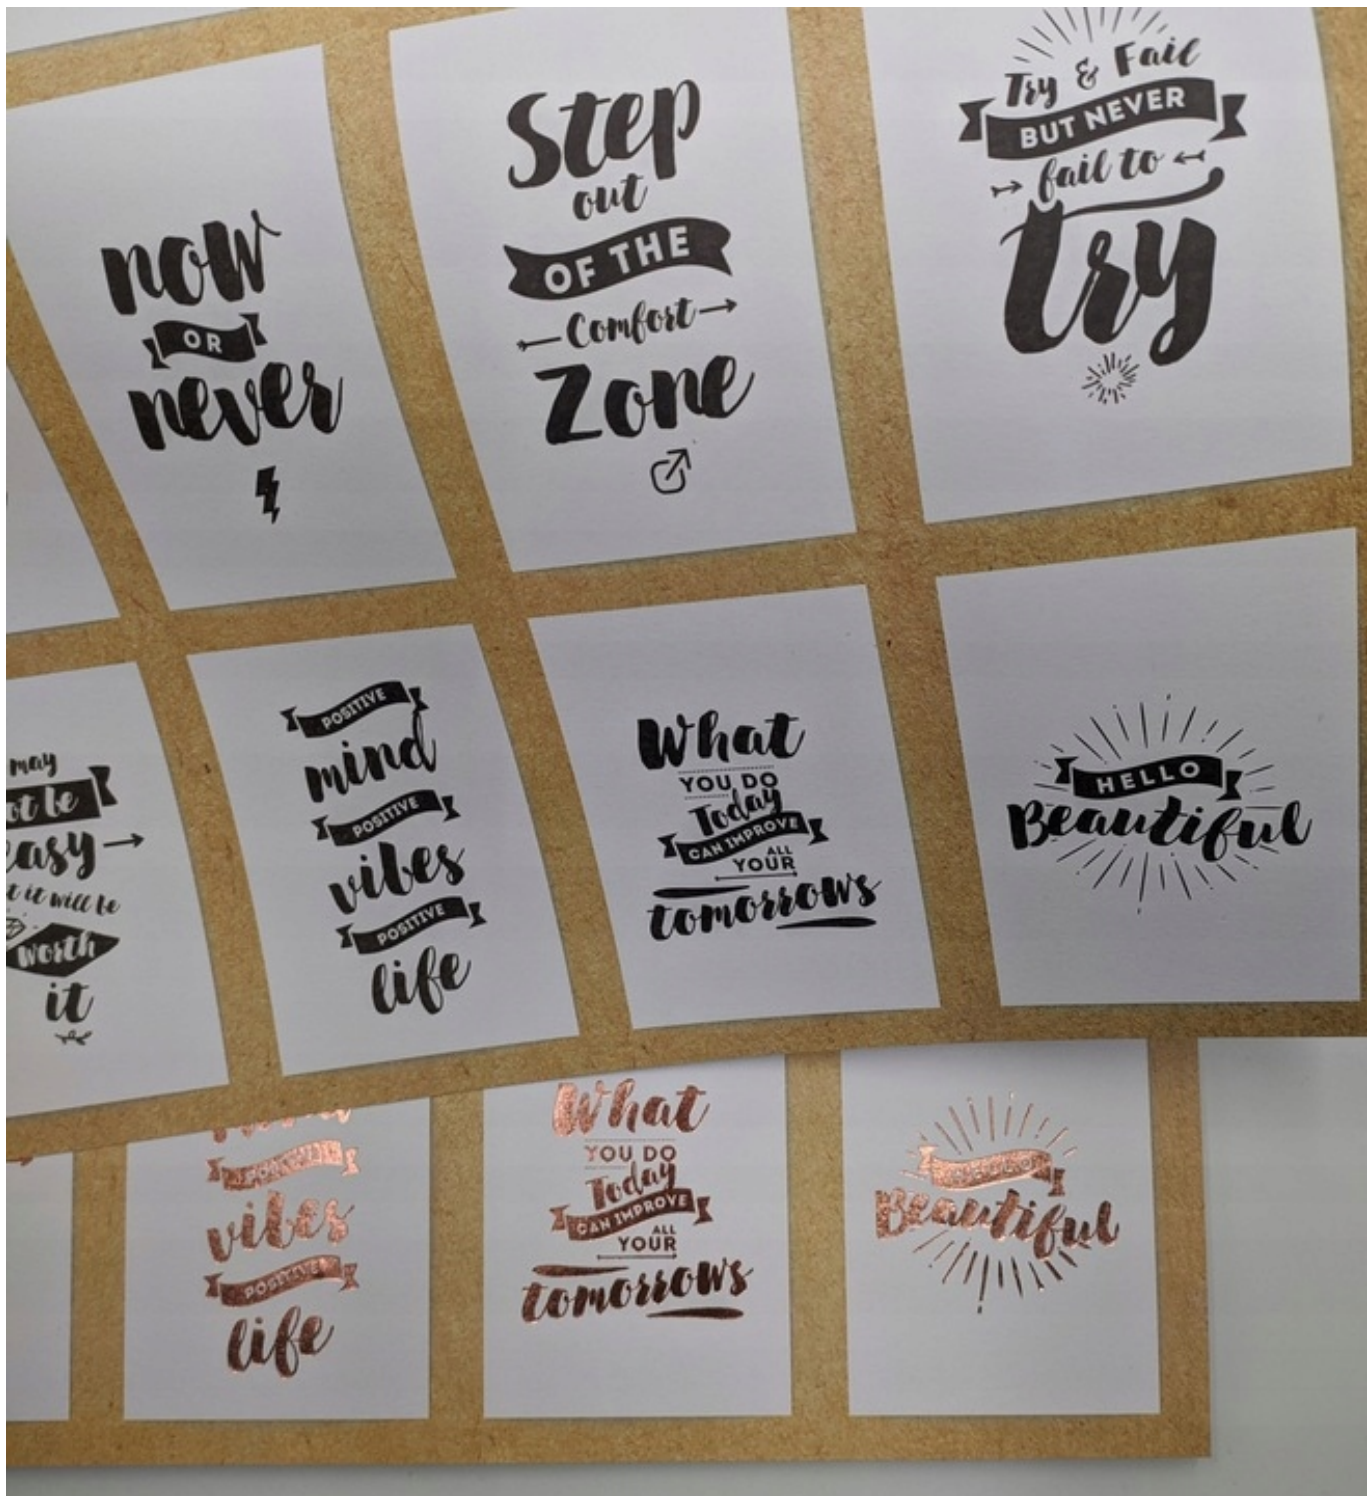 now
OR
never
Step
out
OF THE
Comfort
Zone
Try & Fail
BUT NEVER
fail to
try
may
ot be
easy
t it will be
worth
it
POSITIVE
mind
POSITIVE
vibes
POSITIVE
life
What
YOU DO
Today
CAN IMPROVE
ALL
YOUR
tomorrows
HELLO
Beautiful
vibes
POSITIVE
life
What
YOU DO
Today
CAN IMPROVE
ALL
YOUR
tomorrows
Beautiful